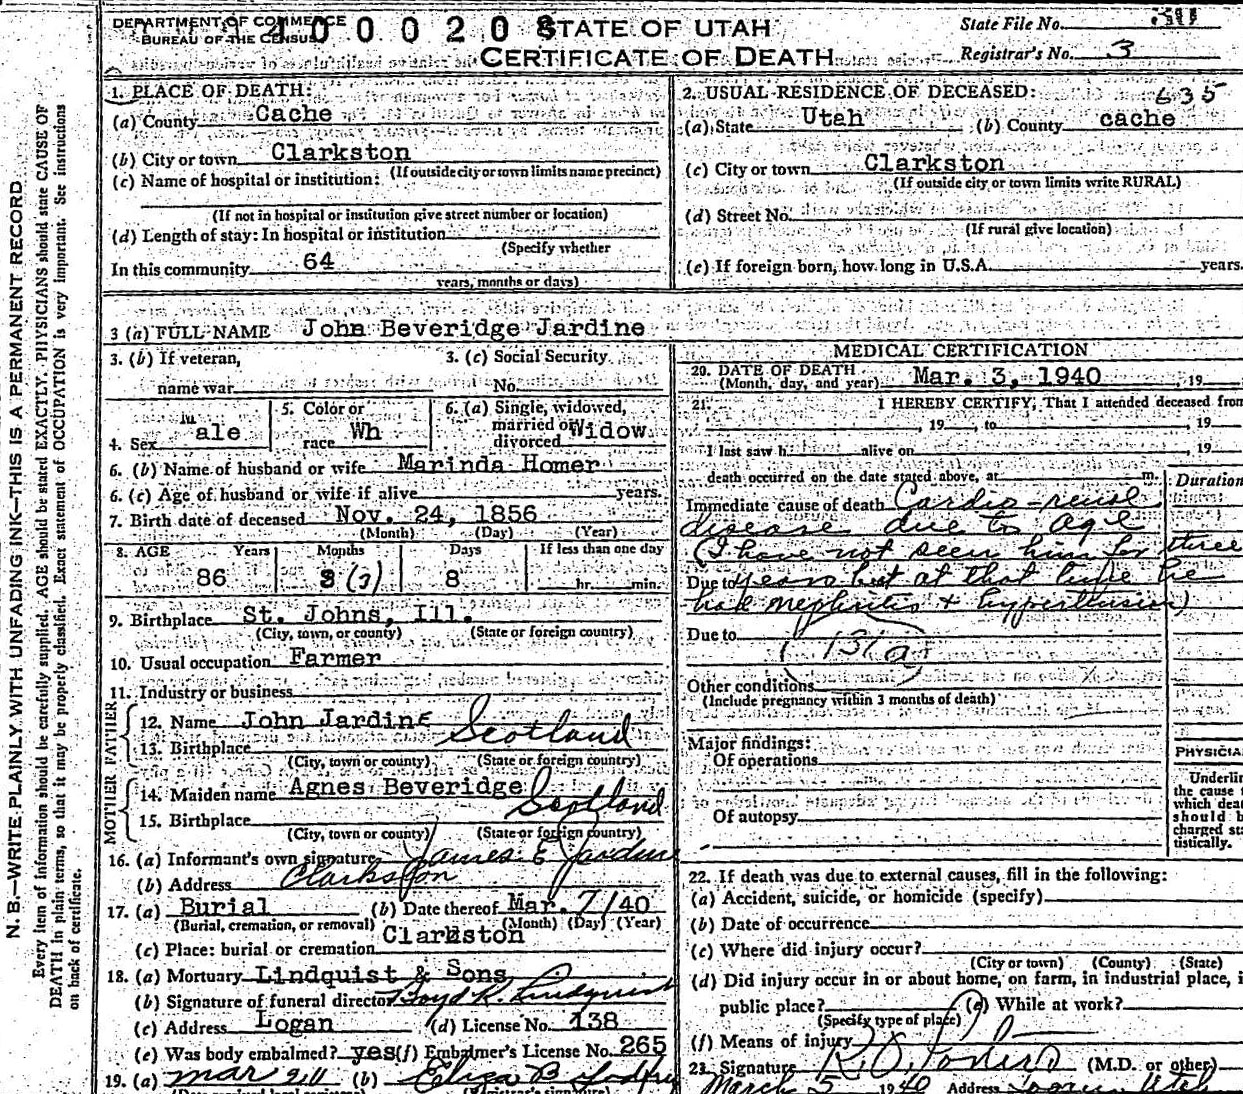 DEPARTMENT OF COMMERCE
BUREAU OF THE CENSUS
400020
STATE OF UTAH
CERTIFICATE OF DEATH
State File No.
Registrar's No. 3
N. B.—WRITE PLAINLY WITH UNFADING INK—THIS IS A PERMANENT RECORD
Every item of information should be carefully supplied. AGE should be stated EXACTLY. PHYSICIANS should state CAUSE OF
DEATH in plain terms, so that it may be properly classified. Exact statement of OCCUPATION is very important. See instructions
on back of certificate.
1. PLACE OF DEATH:
(a) County Cache
(b) City or town Clarkston
(If outside city or town limits name precinct)
(c) Name of hospital or institution:
(If not in hospital or institution give street number or location)
(d) Length of stay: In hospital or institution
(Specify whether
In this community 64
years, months or days)
2. USUAL RESIDENCE OF DECEASED: 635
(a) State Utah (b) County cache
(c) City or town Clarkston
(If outside city or town limits write RURAL)
(d) Street No.
(If rural give location)
(e) If foreign born, how long in U.S.A. years.
3 (a) FULL NAME John Beveridge Jardine
3. (b) If veteran,
name war
3. (c) Social Security
No.
4. Sex Male
5. Color or
race Wh
6. (a) Single, widowed,
married or
divorced Widow.
6. (b) Name of husband or wife Marinda Homer
6. (c) Age of husband or wife if alive years.
7. Birth date of deceased Nov. 24, 1856
(Month) (Day) (Year)
8. AGE Years Months Days If less than one day
86 3 (3) 8 hr. min.
9. Birthplace St. Johns, Ill.
(City, town, or county) (State or foreign country)
10. Usual occupation Farmer
11. Industry or business
FATHER
12. Name John Jardine
13. Birthplace Scotland
(City, town or county) (State or foreign country)
MOTHER
14. Maiden name Agnes Beveridge
15. Birthplace Scotland
(City, town or county) (State or foreign country)
16. (a) Informant's own signature James E Jardine
(b) Address Clarkston
17. (a) Burial (b) Date thereof Mar. 7/40
(Burial, cremation, or removal) (Month) (Day) (Year)
(c) Place: burial or cremation Clarkston
18. (a) Mortuary Lindquist & Sons
(b) Signature of funeral director Boyd K. Lindquist
(c) Address Logan (d) License No. 138
(e) Was body embalmed? yes (f) Embalmer's License No. 265
19. (a) Mar (b) Eliza B Godfrey
MEDICAL CERTIFICATION
20. DATE OF DEATH
(Month, day, and year) Mar. 3, 1940, 19
21. I HEREBY CERTIFY, That I attended deceased from
, 19 , to , 19
I last saw h alive on , 19
death occurred on the date stated above, at m.
Duration
Immediate cause of death Cardio-renal
disease due to age
(I have not seen him for three
Due to years but at that time he
had nephritis + hypertension)
Due to
(131a)
Other conditions
(Include pregnancy within 3 months of death)
Major findings:
Of operations
Of autopsy
PHYSICIA
Underlin
the cause
which dea
should b
charged sta
tistically.
22. If death was due to external causes, fill in the following:
(a) Accident, suicide, or homicide (specify)
(b) Date of occurrence
(c) Where did injury occur?
(City or town) (County) (State)
(d) Did injury occur in or about home, on farm, in industrial place, i
public place? (e) While at work?
(Specify type of place)
(f) Means of injury
23. Signature R. O. (M.D. or other)
March 5 1940 Address Logan Utah